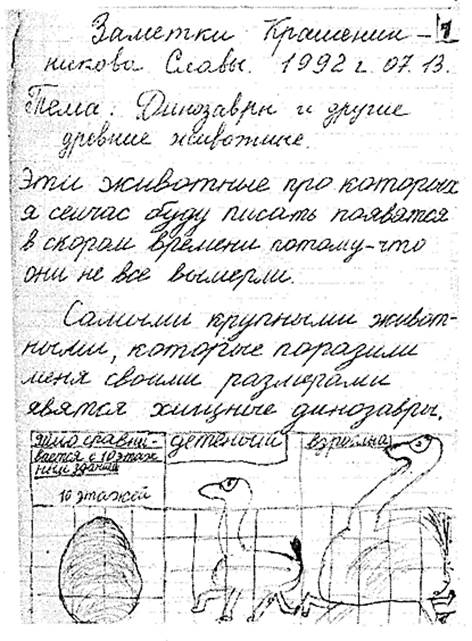 Заметки Крашенин-
1
никова Славы. 1992 г. 07.13.
Тема: Динозавры и другие
древние животные.
Эти животные про которых
я сейчас буду писать появятся
в скором времени потому-что
они не все вымерли.
Самыми крупными живот-
ными, которые поразили
меня своими размерами
явятся хищные динозавры.
яйцо сравни-
вается с 10 этаж
ным зданием
10 этажей
детеныш
взрослый